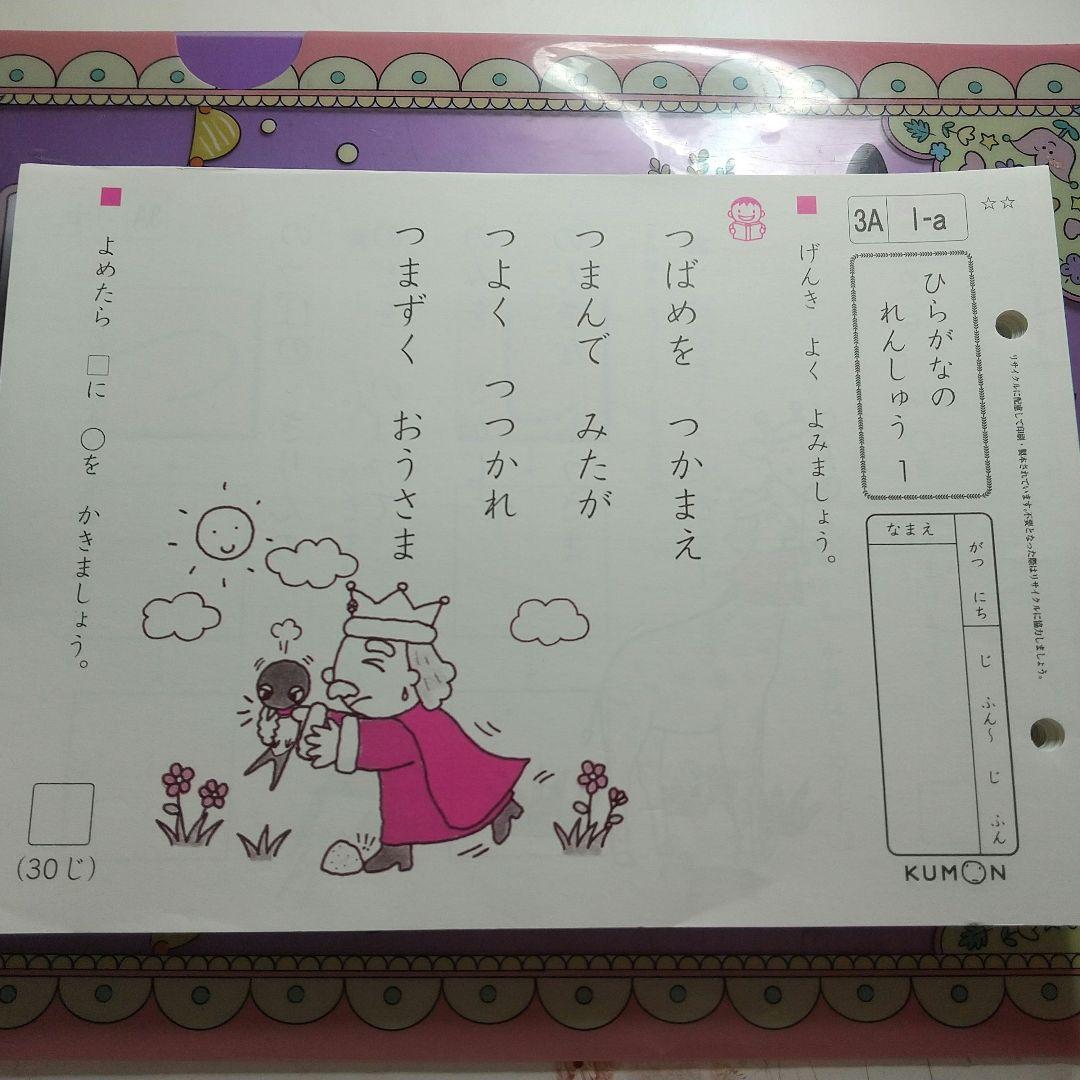 ☆☆
3A 1-a
ひらがなの
れんしゅう 1
がつ にち じ ふん〜 じ ふん
なまえ
KUMON
リサイクルに配慮して印刷・製本されています。不要となった際はリサイクルに協力しましょう。
■ げんき よく よみましょう。
つばめを つかまえ
つまんで みたが
つよく つつかれ
つまずく おうさま
■ よめたら □に ○を かきましょう。
(30じ)